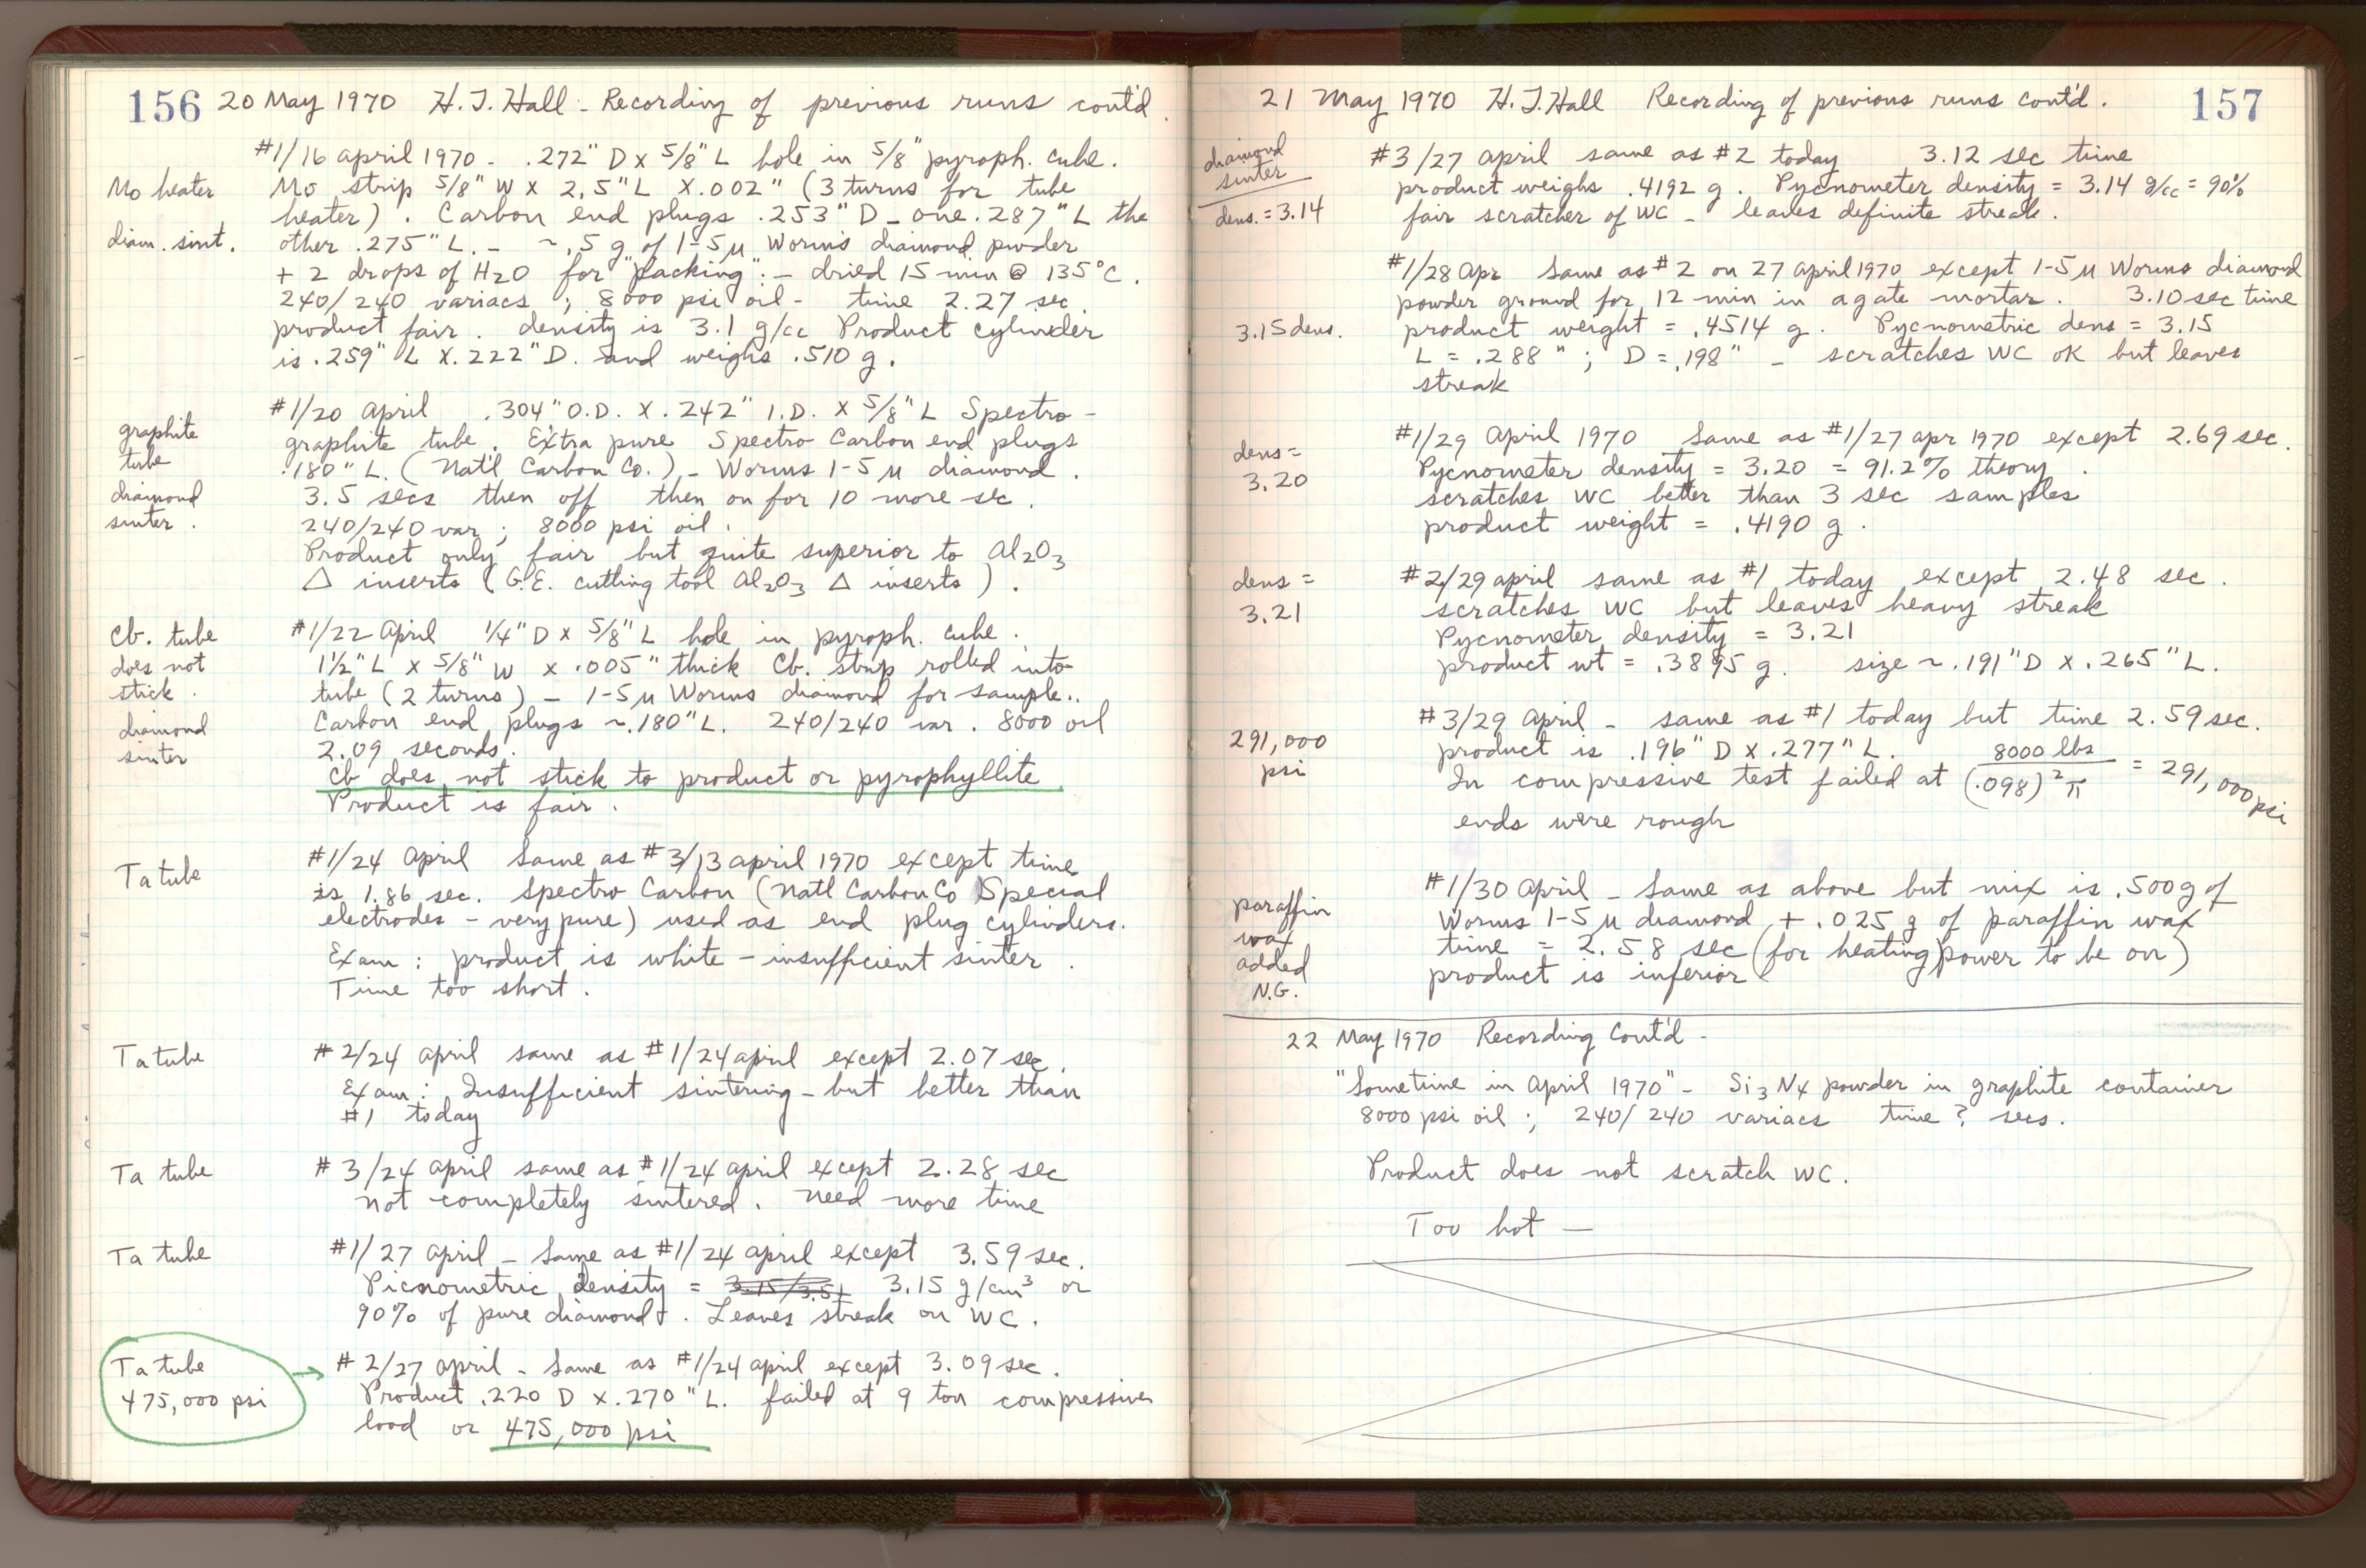 156 20 May 1970 H.T.Hall - Recording of previous runs cont'd.
#1/16 April 1970 - .272" D x 5/8" L hole in 5/8" pyroph. cube.
Mo heater Mo strip 5/8" W x 2.5" L x .002" (3 turns for tube
heater). Carbon end plugs .253" D - one .287" L the
diam. sint. other .275" L. - ~ .5 g of 1-5 µ Worms diamond pwder
+ 2 drops of H2O for "packing". - dried 15 min @ 135°C.
240/240 variacs ; 8000 psi oil - time 2.27 sec.
product fair. density is 3.1 g/cc Product cylinder
is .259" L x .222" D. and weighs .510 g.
#1/20 April .304" O.D. x .242" I.D. x 5/8" L Spectro-
graphite graphite tube. Extra pure Spectro Carbon end plugs
tube .180" L. (Nat'l Carbon Co.) - Worms 1-5 µ diamond.
diamond 3.5 secs then off then on for 10 more sec.
sinter. 240/240 var ; 8000 psi oil.
Product only fair but quite superior to Al2O3
Δ inserts (G.E. cutting tool Al2O3 Δ inserts).
Cb. tube #1/22 April 1/4" D x 5/8" L hole in pyroph. cube.
does not 1 1/2" L x 5/8" W x .005" thick Cb. strip rolled into
stick. tube (2 turns) - 1-5 µ Worms diamond for sample..
diamond Carbon end plugs ~ .180" L. 240/240 var. 8000 oil
sinter 2.09 seconds.
Cb does not stick to product or pyrophyllite
Product is fair.
#1/24 April Same as #3/13 april 1970 except time
Ta tube is 1.86 sec. Spectro Carbon (Natl Carbon Co Special
electrodes - very pure) used as end plug cylinders.
Exam : product is white - insufficient sinter.
Time too short.
Ta tube #2/24 April same as #1/24 april except 2.07 sec.
Exam : Insufficient sintering - but better than
#1 today
Ta tube #3/24 April same as #1/24 april except 2.28 sec
not completely sintered. Need more time
Ta tube #1/27 April - Same as #1/24 april except 3.59 sec.
Picnometric density = 3.15/3.51 3.15 g/cm3 or
90% of pure diamond. Leaves streak on WC.
Ta tube → #2/27 April - Same as #1/24 april except 3.09 sec.
475,000 psi Product .220 D x .270" L. failed at 9 ton compressive
load or 475,000 psi
21 May 1970 H.T.Hall Recording of previous runs cont'd. 157
diamond #3/27 April same as #2 today 3.12 sec time
sinter product weighs .4192 g. Pycnometer density = 3.14 g/cc = 90%
dens. = 3.14 fair scratcher of WC - leaves definite streak.
#1/28 Apr Same as #2 on 27 April 1970 except 1-5 µ Worms diamond
powder ground for 12 min in agate mortar. 3.10 sec time
3.15 dens. product weight = .4514 g. Pycnometric dens = 3.15
L = .288" ; D = .198" - scratches WC OK but leaves
streak
#1/29 April 1970 Same as #1/27 apr 1970 except 2.69 sec.
dens = Pycnometer density = 3.20 = 91.2% theory.
3.20 scratches WC better than 3 sec samples
product weight = .4190 g.
dens = #2/29 april same as #1 today except 2.48 sec.
3.21 scratches WC but leaves heavy streak
Pycnometer density = 3.21
product wt = .3895 g. size ~ .191" D x .265" L.
#3/29 April - same as #1 today but time 2.59 sec.
291,000 product is .196" D x .277" L.
psi In compressive test failed at 8000 lbs / (.098)2 π = 291,000 psi
ends were rough
#1/30 April - Same as above but mix is .500 g of
paraffin Worms 1-5 µ diamond + .025 g of paraffin wax
wax time = 2.58 sec (for heating power to be on)
added product is inferior
N.G.
22 May 1970 Recording Cont'd -
"Sometime in April 1970" - Si3N4 powder in graphite container
8000 psi oil ; 240/240 variacs time ? secs.
Product does not scratch WC.
Too hot —